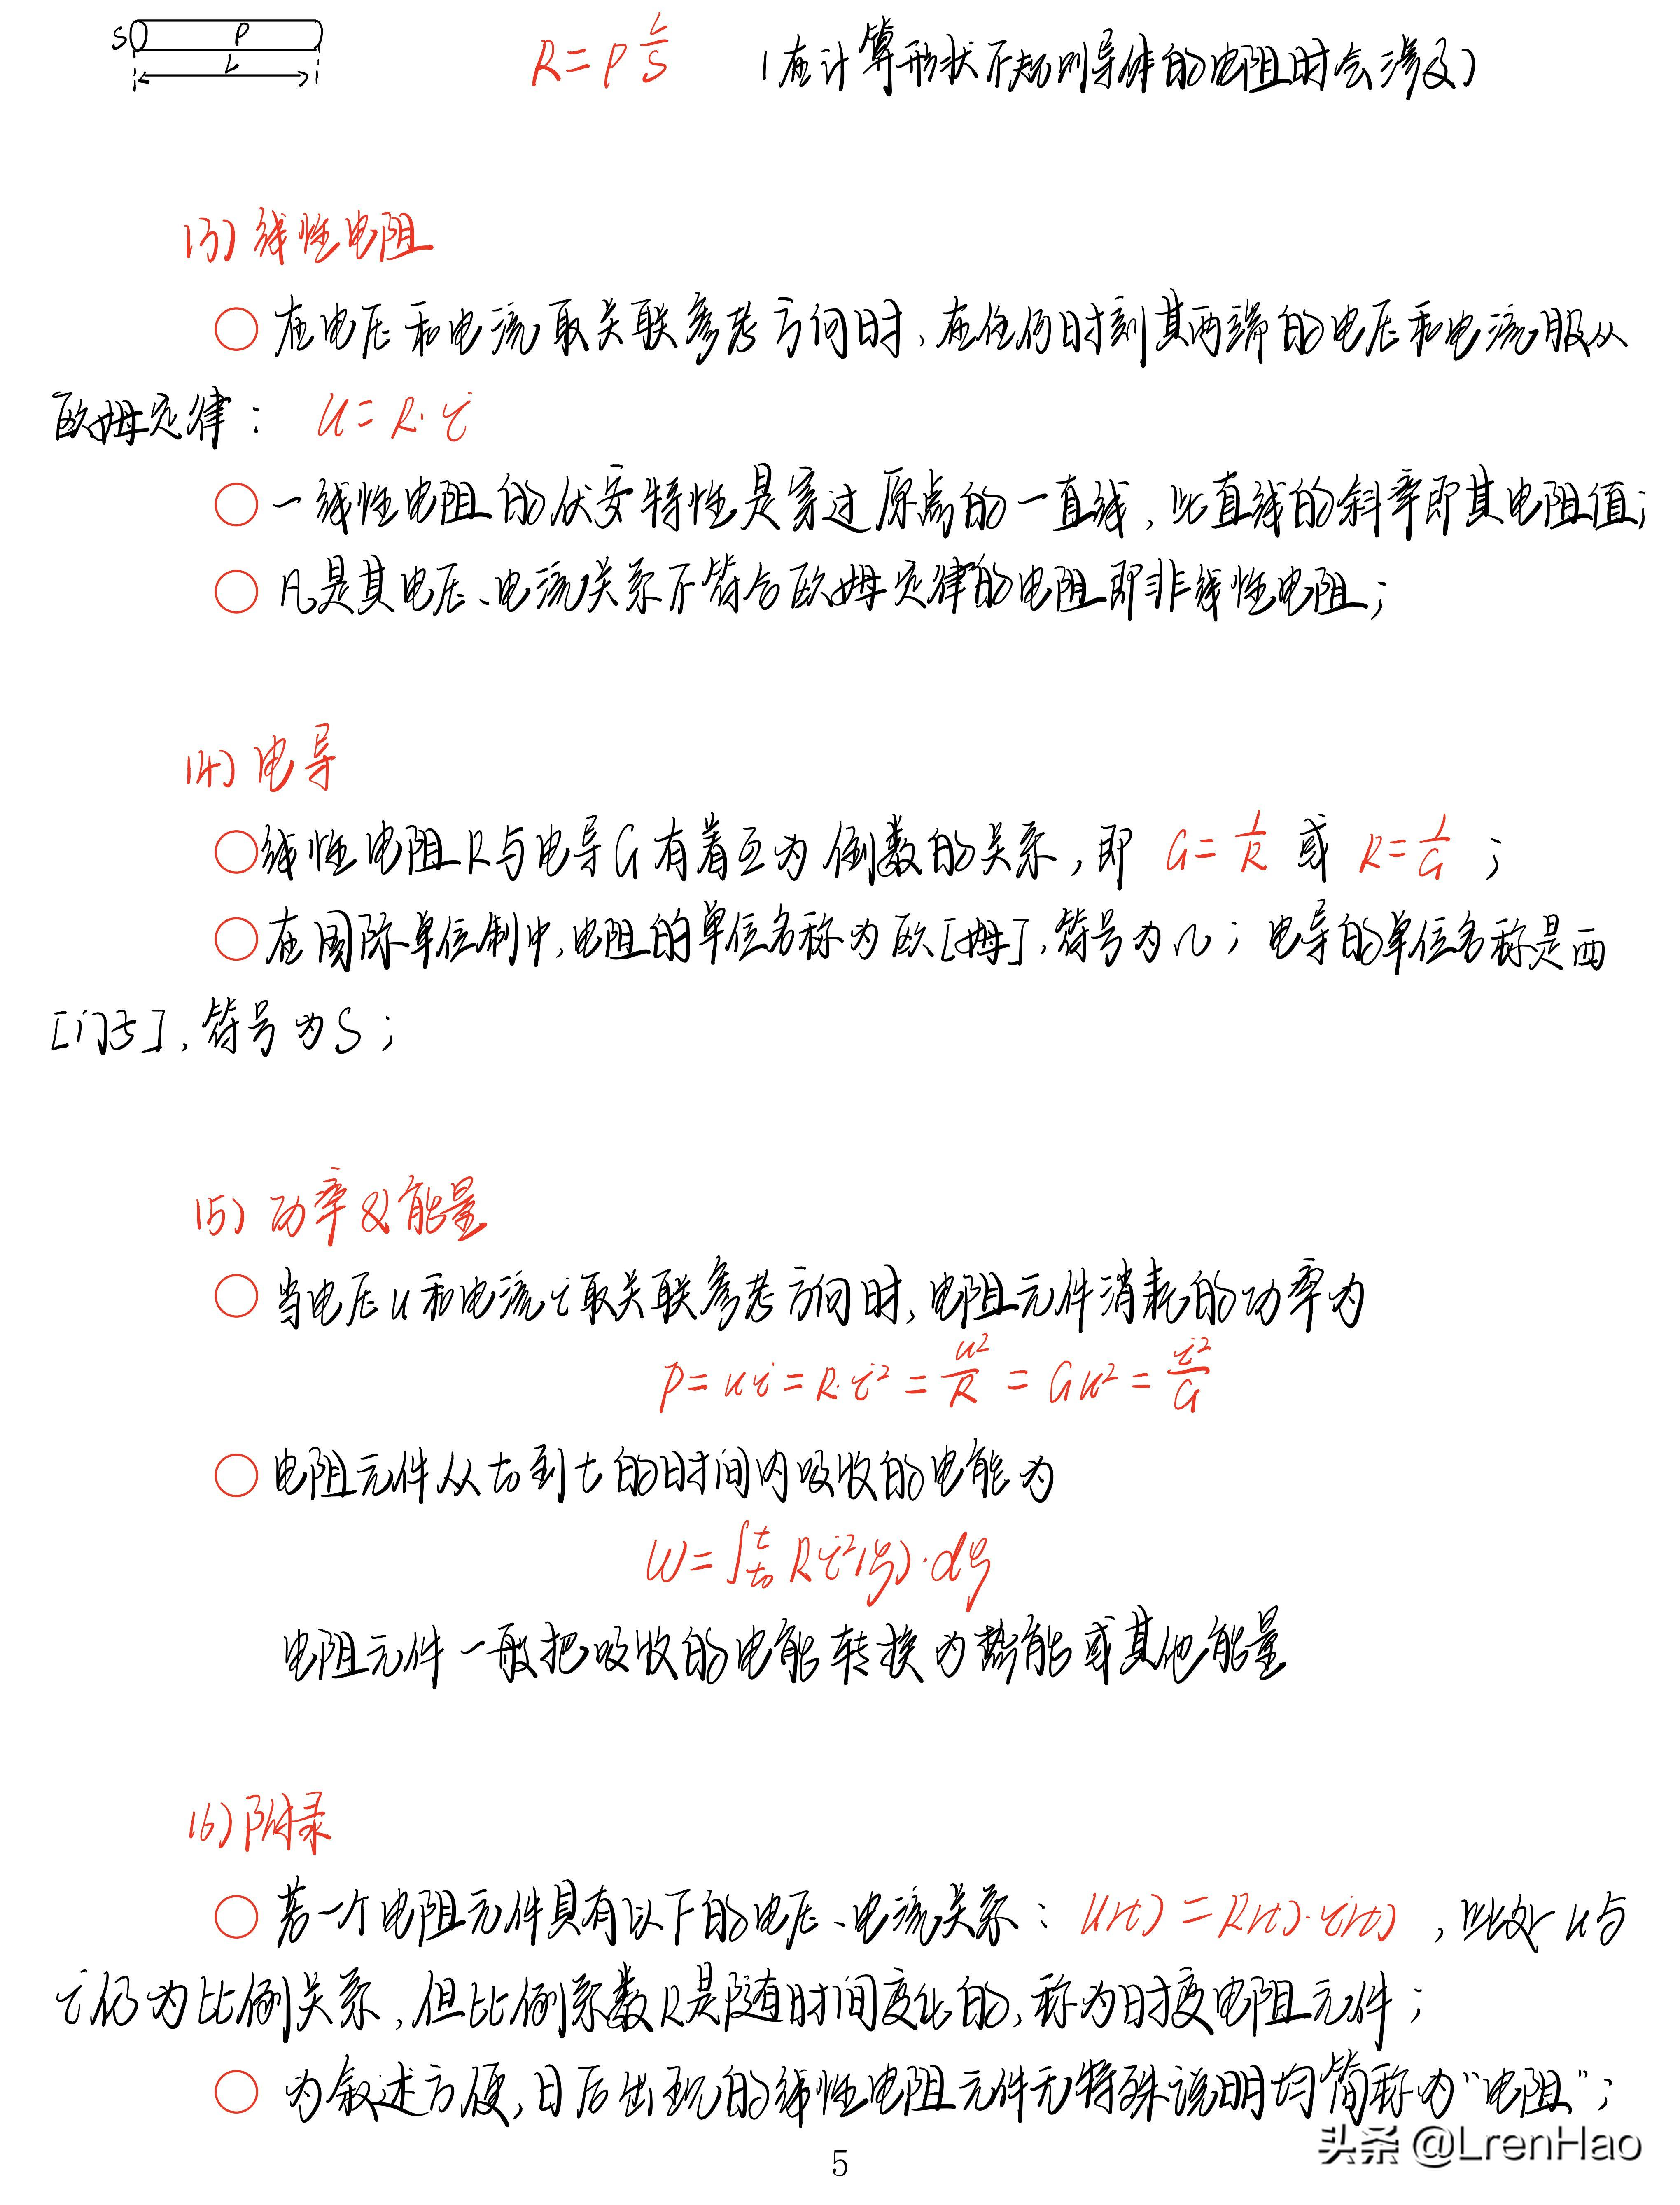 S ρ L R=ρ L/S (在计算形状不规则导体的电阻时会涉及)
(3) 线性电阻
○ 在电压和电流取关联参考方向时、在任何时刻其两端的电压和电流服从
欧姆定律: u=R·i
○ 一线性电阻的伏安特性是穿过原点的一直线,此直线的斜率即其电阻值;
○ 凡是其电压、电流关系不符合欧姆定律的电阻即非线性电阻;
(4) 电导
○ 线性电阻R与电导G有着互为倒数的关系,即 G=1/R 或 R=1/G ;
○ 在国际单位制中,电阻的单位名称为欧[姆],符号为Ω;电导的单位名称是西
[门子],符号为S;
(5) 功率&能量
○ 当电压u和电流i取关联参考方向时,电阻元件消耗的功率为
P=ui=R·i²=u²/R=Gu²=i²/G
○ 电阻元件从t₀到t的时间内吸收的电能为
W=∫ₜ₀ᵗ Ri²(ξ)·dξ
电阻元件一般把吸收的电能转换为热能或其他能量
(6) 附录
○ 若一个电阻元件具有以下的电压、电流关系: u(t)=R(t)·i(t) ,此处u与
i仍为比例关系,但比例系数R是随时间变化的,称为时变电阻元件;
○ 为叙述方便,日后出现的线性电阻元件无特殊说明均简称为“电阻”;
头条 @LrenHao
5